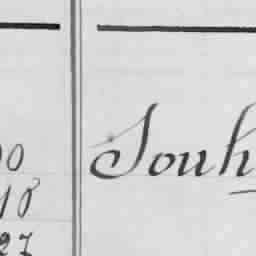 Souh
00
10
27